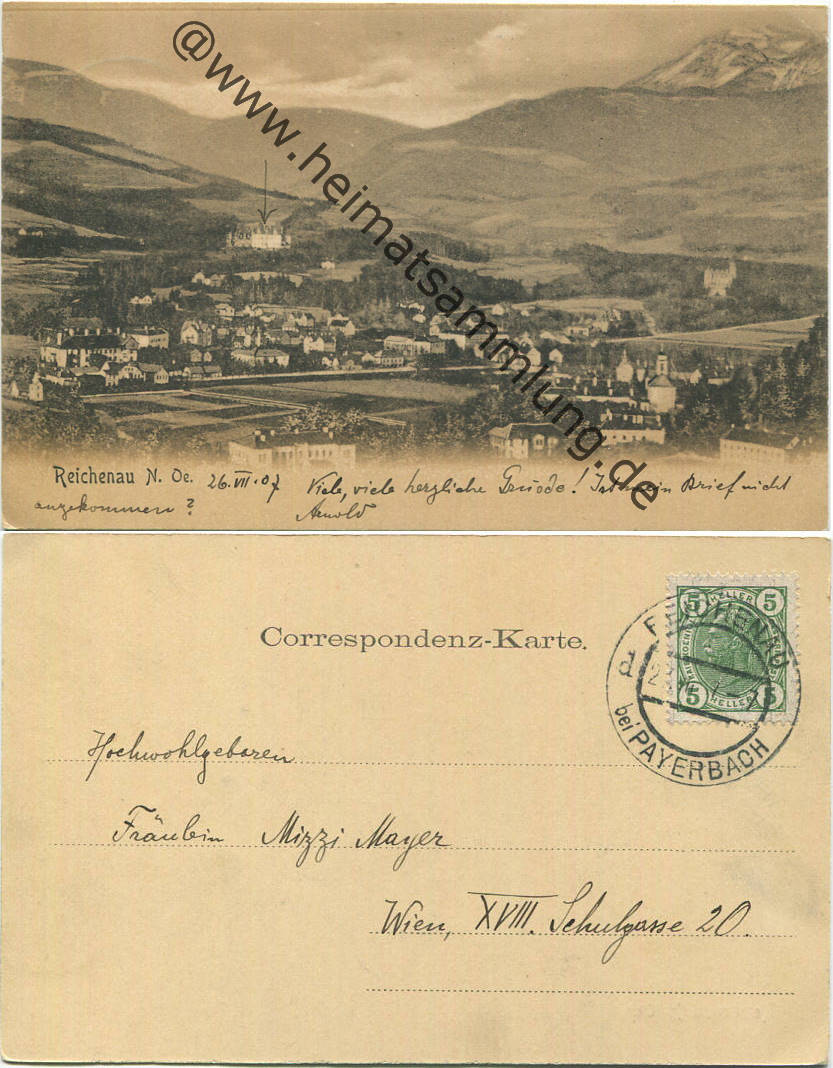 @www.heimatsammlung.de
Reichenau N. Oe. 26.VII.07 Viele, viele herzliche Grüße! Ist mein Brief nicht
angekommen?
Arnold
Correspondenz-Karte.
5 HELLER 5
5 HELLER 5
REICHENAU
bei PAYERBACH
Hochwohlgeboren
Fräulein Mizzi Mayer
Wien, XVIII. Schulgasse 20.